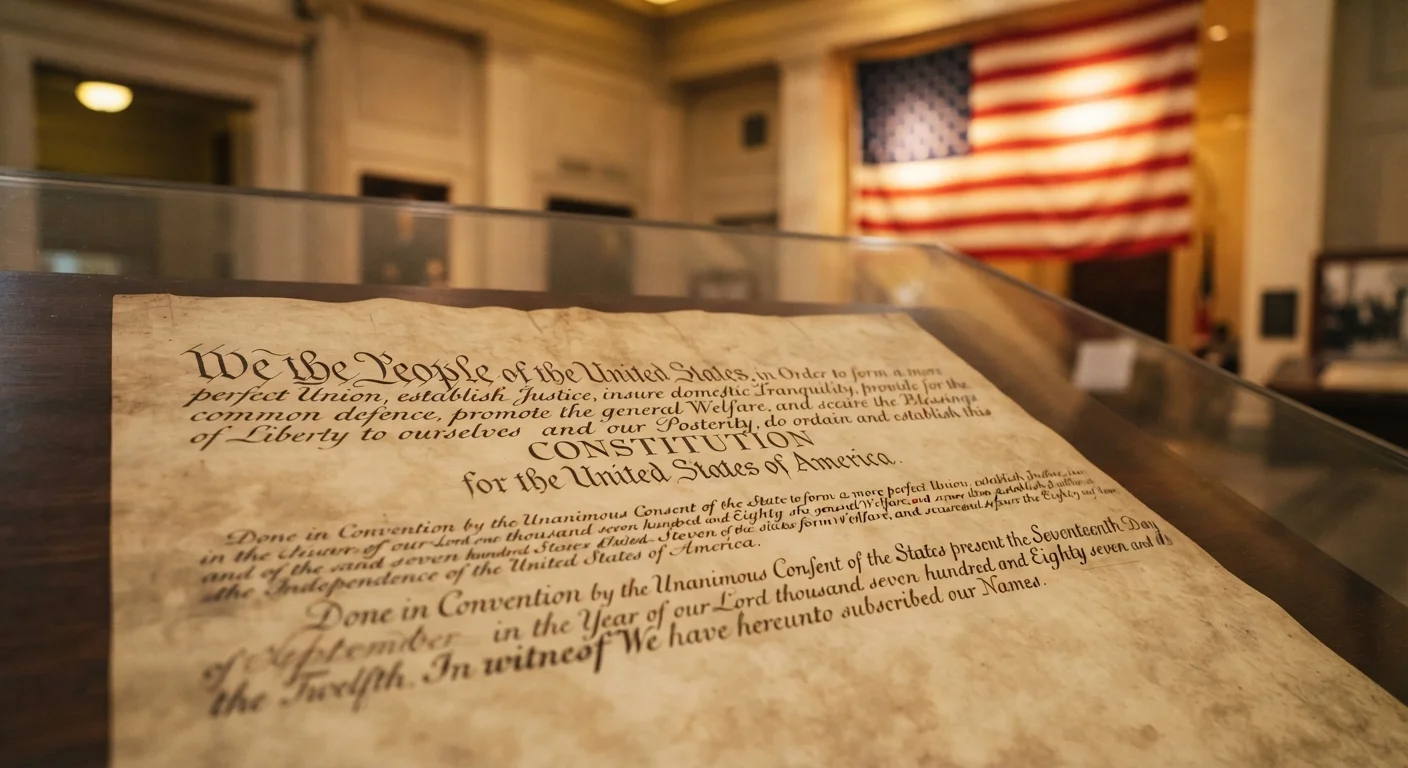 We the People of the United States, in Order to form a more
perfect Union, establish Justice, insure domestic Tranquility, provide for the
common defence, promote the general Welfare, and secure the Blessings
of Liberty to ourselves and our Posterity, do ordain and establish this
CONSTITUTION
for the United States of America.
Done in Convention by the Unanimous Consent of the State to form a more perfect Union, establish
in the of our Lord one thousand seven hundred and Eighty the general Welfare, and
and of the and seven hundred States Steven of the states form Welfare, and the Eighty
the Independence of the United States of America.
Done in Convention by the Unanimous Consent of the States present the Seventeenth Day
of September in the Year of our Lord thousand seven hundred and Eighty seven and
the Twelfth. In witneof We have hereunto subscribed our Names.